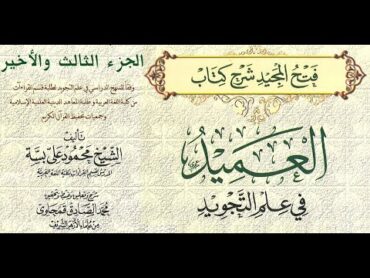 الجزء الثالث والأخير
وفقا للمنهج الدراسي في علم التجويد لطلبة قسم القراءات
من كلية اللغة العربية وطلبة المعاهد الدينية العلمية الإسلامية
وجمعيات تحفيظ القرآن الكريم
تأليف
الشيخ محمود علي بسة
شرح وتعليق
محمد الصادق قمحاوي
من علماء الأزهر الشريف
فتح المجيد شرح كتاب
العميد
في علم التجويد